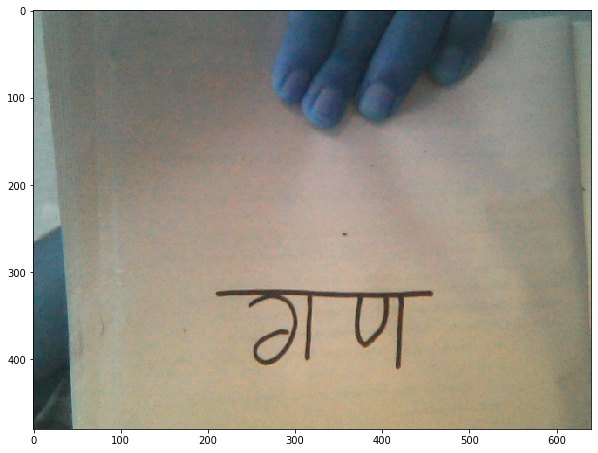 0
100
200
300
गण
400
0 100 200 300 400 500 600